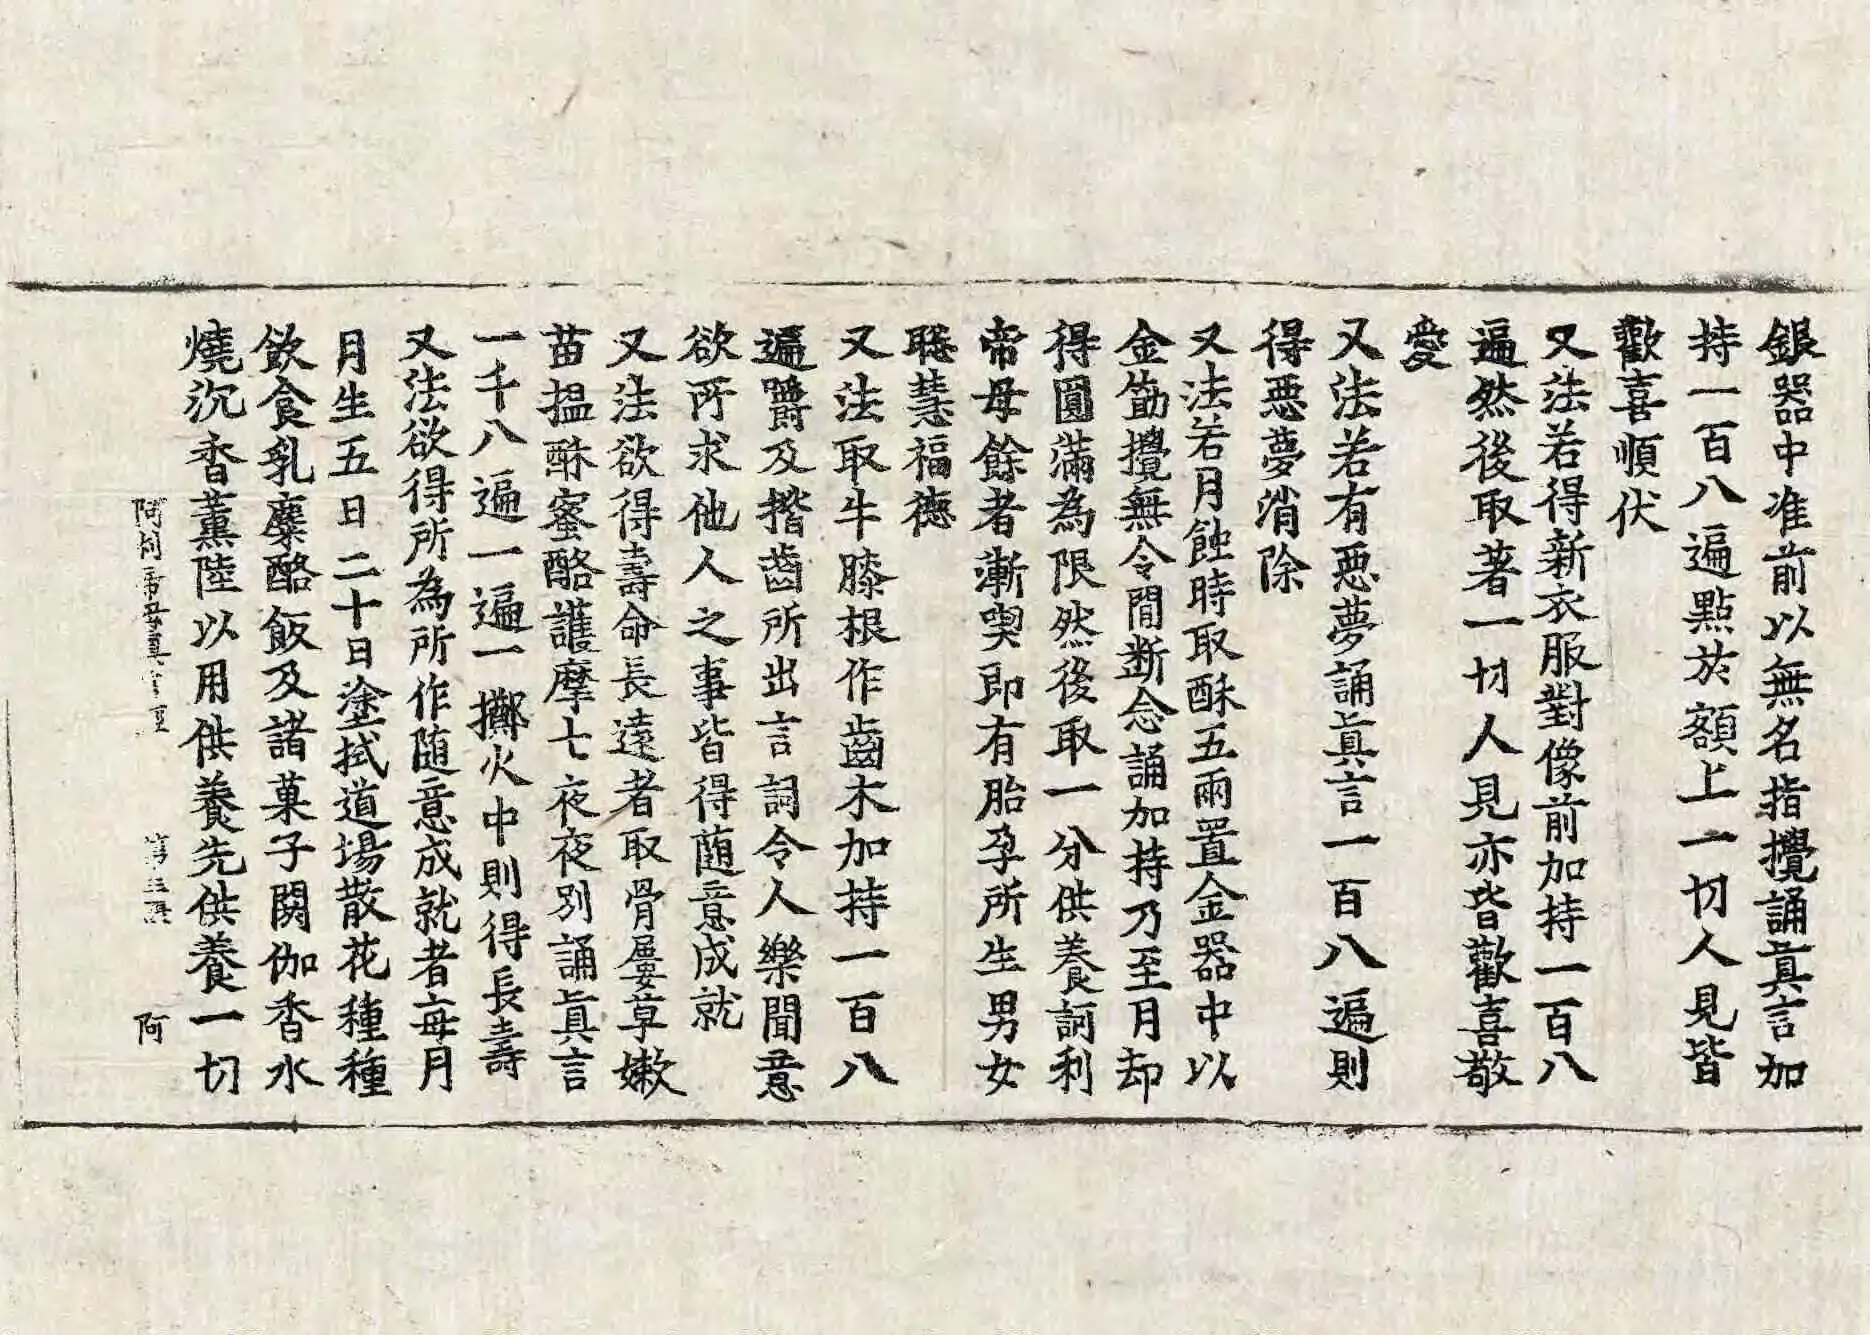 銀器中准前以無名指攪誦真言加
持一百八遍點於額上一切人見皆
歡喜順伏
又法若得新衣服對像前加持一百八
遍然後取著一切人見亦皆歡喜敬
愛
又法若有惡夢誦真言一百八遍則
得惡夢消除
又法若月蝕時取酥五兩置金器中以
金筯攪無令間断念誦加持乃至月却
得圓滿為限然後取一分供養訶利
帝母餘者漸喫即有胎孕所生男女
聡慧福德
又法取牛膝根作齒木加持一百八
遍嚼及揩齒所出言詞令人樂聞意
欲所求他人之事皆得随意成就
又法欲得壽命長遠者取骨屢草嫩
苗揾酥蜜酪護摩七夜夜別誦真言
一千八遍一遍一擲火中則得長壽
又法欲得所為所作随意成就者每月
月生五日二十日塗拭道場散花種種
飲食乳糜酪飯及諸菓子閼伽香水
燒沉香薰陸以用供養先供養一切
阿利帝母真言經 第三張 阿